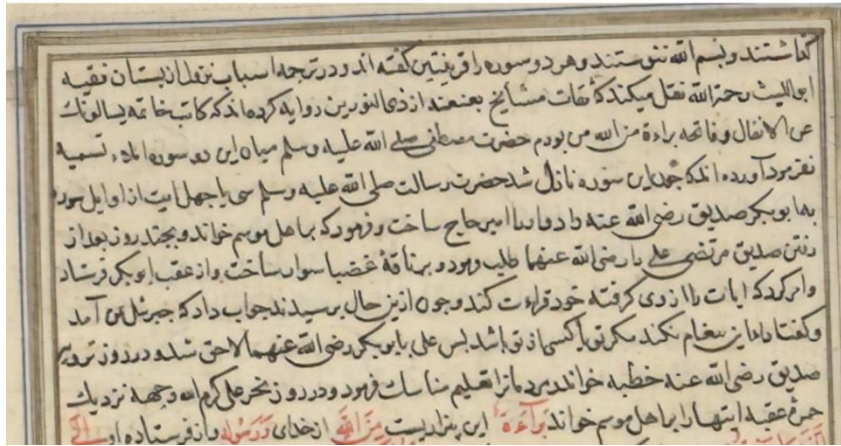 گذاشتند و بسم الله ننوشتند و هر دو سوره را قرینتین گفته اند و در ترجمه اسباب نزول از بستان فقیه
ابواللیث رحمة الله نقل میکند که ثقات مشایخ بعنعنه از ذی النورین روایه کرده اند که کاتب خاتمه یسالونک
عن الانفال و فاتحه براءة من الله من بودم حضرت مصطفی صلی الله علیه وسلم میان این دو سوره املاء تسمیه
نفرمود آورده اند که چون این سوره نازل شد حضرت رسالت صلی الله علیه وسلم سی یا چهل ایت از اوایل سوره
به ابوبکر صدیق رضی الله عنه داد و او را امیر حاج ساخت و فرمود که بر اهل موسم خواند و بچند روز بعد از
رفتن صدیق مرتضی علی را رضی الله عنهما طلب فرمود و بر ناقهٔ غضبا سوار ساخت و از عقب ابوبکر فرستاد
و امر کرد که ایات را از وی گرفته خود قراءت کند و چون ازین حال پرسیدند جواب داد که جبرئل من آمد
و گفت ادا این پیغام نکند مگر تو یا کسی از تو باشد پس علی بابوبکر رضی الله عنهما لاحق شد و در روز ترویه
صدیق رضی الله عنه خطبه خواند مردمانرا تعلیم مناسک فرمود و در روز نحر علی کرم الله وجهه نزدیک
جمرهٔ عقبه ایتها را بر اهل موسم خواند براءة این بیزاریست من الله از خدای ورسوله و از فرستاده او الی